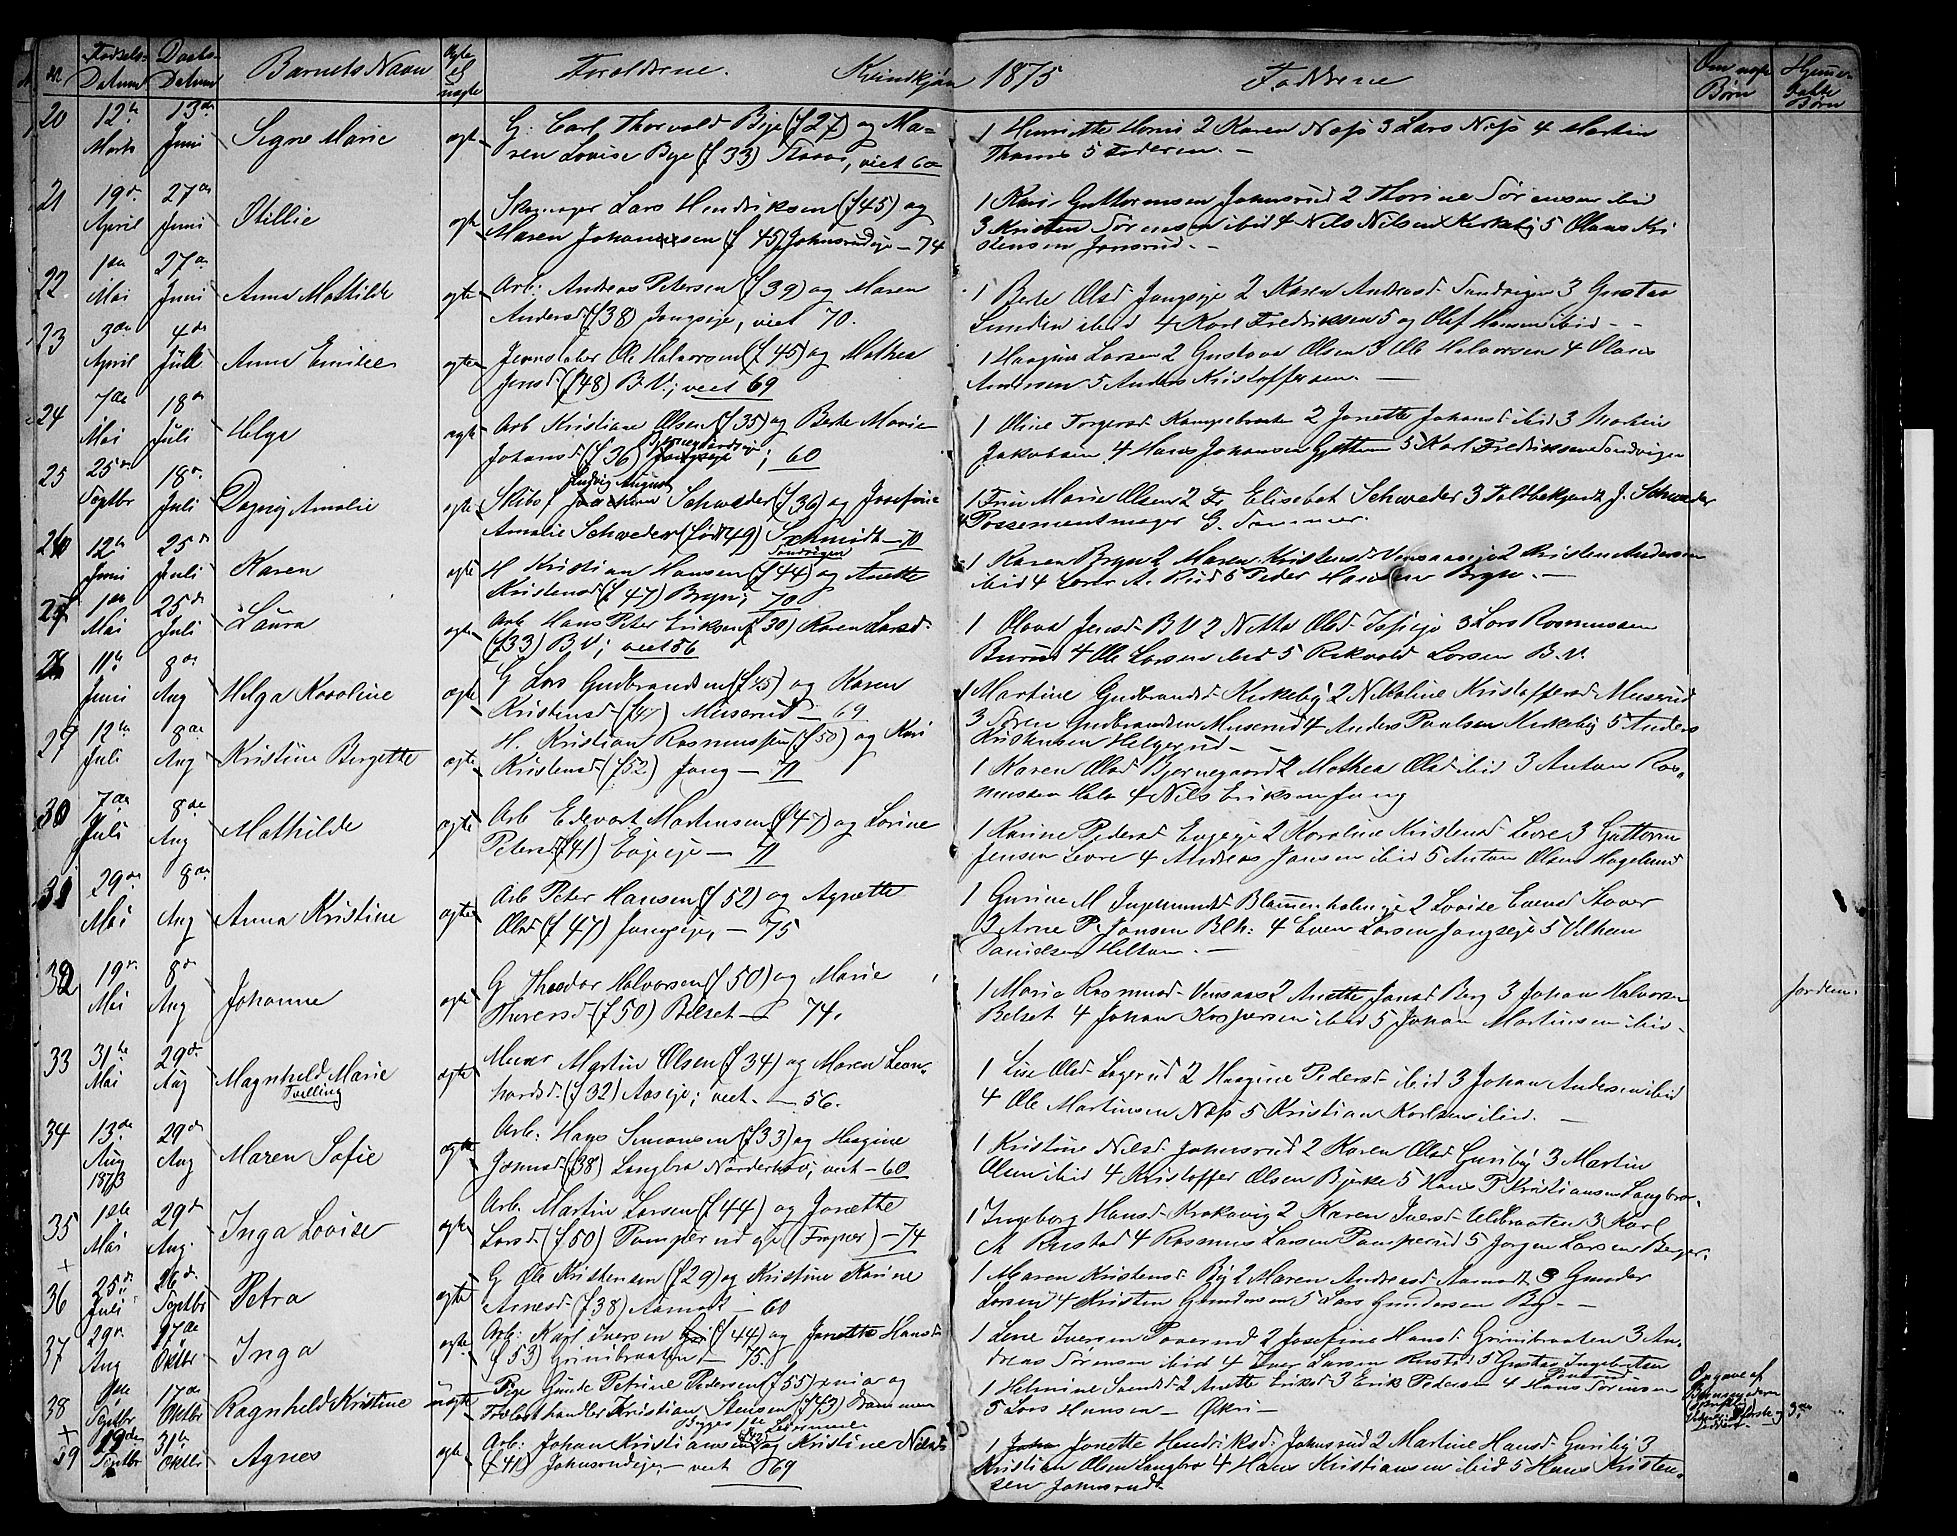 Nr Fødsels Datum Daabs Datum Barnets Navn Ægte el uægte Forældrene. Kvindkjøn 1875 Fadderne Om uægte Børn Hjemmedøbte Børn
20 12te Marts 13de Juni Signe Marie ægte G: Carl Thorvald Bye (f 27) og Ma-
ren Lovise Bye (f 33) viet 60
1 Henriette 2 Karen Næss 3 Lars Næss 4 Martin
5 Faderen. —
21 19de April 27de Juni Skomager Lars Hendriksen (f 45) og
Maren Johannesen (f 45) Johnsrudeje — 74
1 Kari Guttormsen Johnsrud 2 Thorine Sørensen ibid
3 Kristen Sørensen ibid 4 Nils Nilsen Kirkeby 5 Olaus Kri
stensen Jonsrud. —
22 1ste Mai 27de Juni Anna Mathilde ægte Arb: Andreas Petersen (f 39) og Maren
Andersd (f 38) Jongseje, viet 70.
1 Berte Olsd Jongseje 2 Karen Andersd Sandvigen 3 Gustav
Lunden ibid 4 Karl Fredriksen 5 og Olaf Hansen ibid —
23 3de April 4de Juli Anna Emilie ægte Ole Halvorsen (f 45) og Mathea
Jensd (f 48) B. V; viet 69
1 Larsen 2 Gustava Olsen 3 Ole Halvorsen 4 Olaus
Andersen 5 Anders Kristoffersen. —
24 7de Mai 18de Juli Helga ægte Arb Kristian Olsen (f 35) og Berte Marie
Johansd (f 36) ; 60
1 Oline Torgersd 2 Jonette Johansd ibid 3 Martin
Jakobsen 4 Hans Johansen 5 Karl Fredriksen Sandvigen
25 25de Septbr 18de Juli Dagny Amalie ægte Ludvig August
Schwæder (f 36) og Josefine
Amalie Schwæder (født 49) Schmidt — 70
1 Frue Marie Olsen 2 Fr Elisebet Schwæder 3 J. Schwæder
4 Possementmager G.
26 12te Juni 25de Juli Karen ægte Sandvigen
H Kristian Hansen (f 44) og Anette
Kristensd (f 47) Bryn; 70
1 Karen Bryn 2 Maren Kristensd Kristen Andersen
ibid 4 A. Rud 5 Peder Hansen Bryn. —
27 1ste Mai 25de Juli Laura ægte Arb Hans Peter Eriksen (f 30) Karen Larsd.
(f 33) B.V; viet 56
1 Olava Jensd B V 2 Netta Olsd 3 Lars Rasmussen
Burud 4 Ole Larsen ibid 5 Larsen B. V.
28 11te Juni 8de Aug Helga Karoline ægte G Lars Gudbrandsen (f 45) og Karen
Kristensd Muserud — 69
1 Martine Gudbrandsd Kirkeby 2 Nikoline Kristoffersd Muserud
3 Søren Gudbrandsen Muserud 4 Anders Paulsen Kirkeby 5 Anders
Kristensen Helgerud —
29 12te Juli 8de Aug Kristine Birgette ægte H. Kristian Rasmussen (f 50) og Kari
Kristensd (f 52) Jong — 71
1 Karen Olsd Bjørnegaard 2 Mathea Olsd ibid 3 Anton Ras-
mussen 4 Nils Eriksen Jong
30 7de Juli 8de Aug Mathilde ægte Arb Edevart Martinsen (f 47) og Lorine
Petersd (f 41) Engeje — 71
1 Karine Pedersd Engeje 2 Karoline Kristensd Levre 3 Guttorm
Jensen Levre 4 Andreas Jansen ibid 5 Anton Olsen Hagelund
31 29de Mai 8de Aug Anna Kristine ægte Arb Peter Hansen (f 52) og Agnette
Olsd (f 47) Jongseje, — 75
1 Gurine M Ingemundsd Blommenholmeje 2 Lovise Evensd Stover
3 Arne P. Jansen Blh: 4 Even Larsen Jongseje 5 Vilhelm
Danielsen —
32 19de Mai 8de Aug Johanne ægte G Theodor Halvorsen (f 50) og Marie
Iversd (f 50) Belset — 74.
1 Marie Rasmusd 2 Anette Jonsd Berg 3 Johan Halvorsen
Belset 4 Johan Kaspersen ibid 5 Johan Martinsen ibid.
Jordem.
33 31te Mai 29de Aug Magnhild Marie
Tvilling ægte Murer Martin Olsen (f 34) og Maren Leon-
hardsd. (f 32) Aaseje; viet — 56.
1 Lise Olsd Løgerud 2 Haagine Pedersd ibid 3 Johan Andersen ibid
4 Ole Martinsen Næss 5 Kristian Karlsen ibid. —
34 13de Aug 1873 29de Aug Maren Sofie ægte Arb: Hans Simonsen (f 33) og Haagine
(f 38) Langbro Norderhov, viet — 60
1 Kristine Nilsd Johnsrud 2 Karen Olsd Guriby 3 Martin
Olsen ibid 4 Kristoffer Olsen Bjerke 5 Hans P Kristiansen Langbro.
35 1ste Mai 29de Aug. Inga Lovise ægte Arb. Martin Larsen (f 44) og Jonette
Larsd (f 50) Pamperud eje — 74
1 Ingeborg Hansd Krokovig 2 Karen Iversd 3 Karl
M Rustad 4 Rasmus Larsen Pamperud 5 Jørgen Larsen Berger.
+
36 25de Juli 26de Septbr Petra ægte G Ole Kristensen (f 29) og Kristine Karine
Arnesd (f 38) Aamodt — 60
1 Maren Kristensd By 2 Maren Andreasd Aamodt 3 Gunder
Larsen 4 Kristen Gundersen 5 Lars Gundersen By. —
37 29de Aug 17de Oktbr Inga ægte Arb: Karl Iversen (f 44) og Jonette Hansd
(f 53) Grinibraaten — 75.
1 Lene Iversen Paverud 2 Josefine Hansd Grinibraaten 3 An-
dreas Sørensen ibid 4 Iver Larsen Rustad 5 Gustav Ingebretsen
Paverud
38 1ste Septbr 17de Oktbr Ragnhild Kristine uægte Pige Gunde Petrine Pedersen (f 55) og
Trælasthandler Kristian Stensen (f 43) Drammen
Begges 1ste Leiermaal
1 Helmine 2 Anette Eriksd 3 Erik Pedersen 4 Hans Sørensen
5 Lars Hansen —
Opgave af
+
39 19de Septbr 31te Oktbr Agnes ægte Arb: Johan Kristiansen og Kristine Nilsd
(f 41) Johnsrudeje — viet 69
1 Jonette Hendriksd. Johnsrud 2 Martine Hansd. Guriby 3
Kristian Olsen Langbro 4 Hans Kristiansen ibid 5 Hans Kristen-
sen Johnsrud